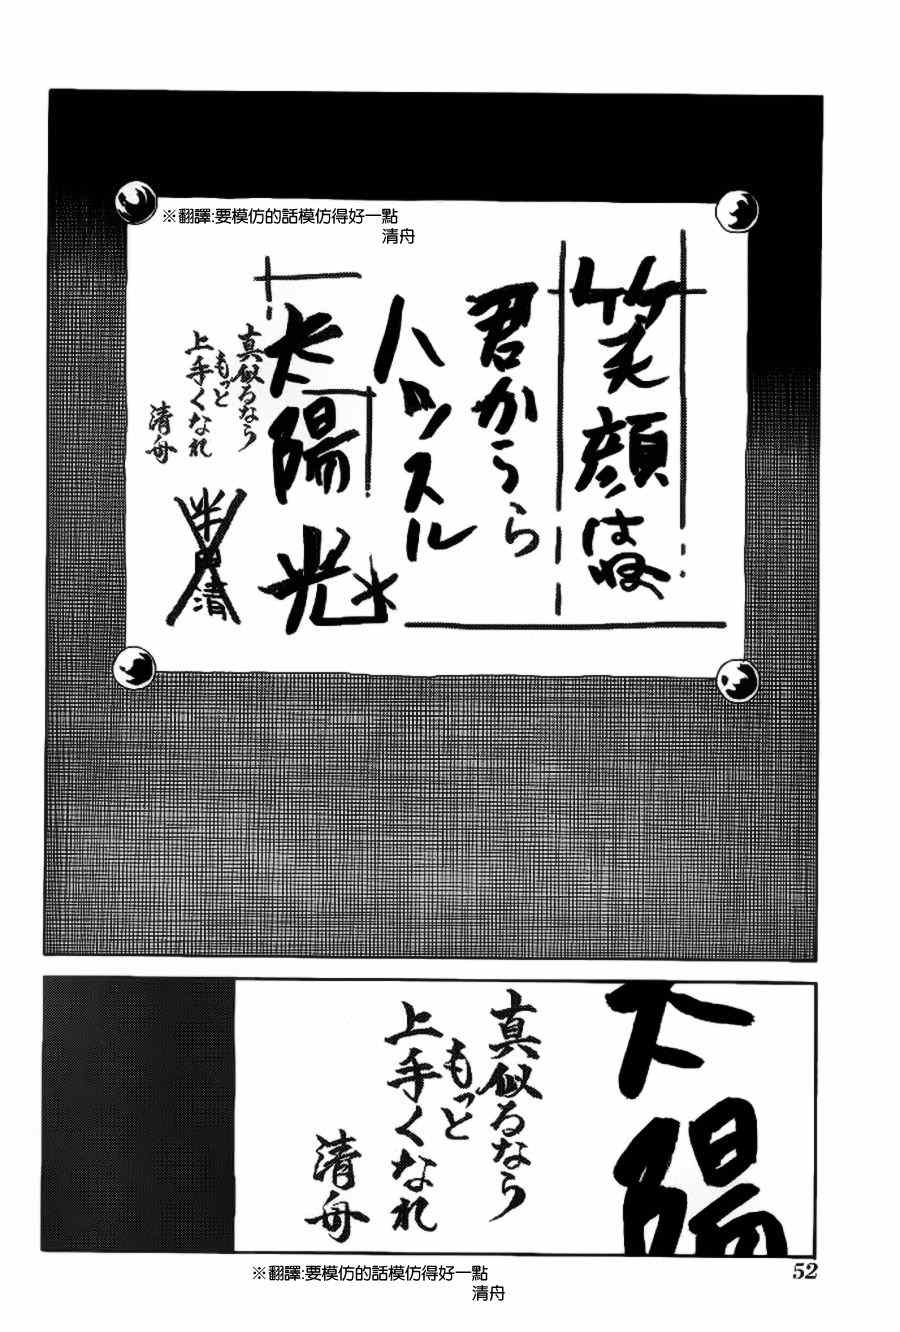 ※翻譯:要模仿的話模仿得好一點
清舟
笑顔はね
君から
ハッスル
太陽光
真似るなら
もっと
上手くなれ
清舟
半田清
太陽
真似るなら
もっと
上手くなれ
清舟
※翻譯:要模仿的話模仿得好一點
清舟
52